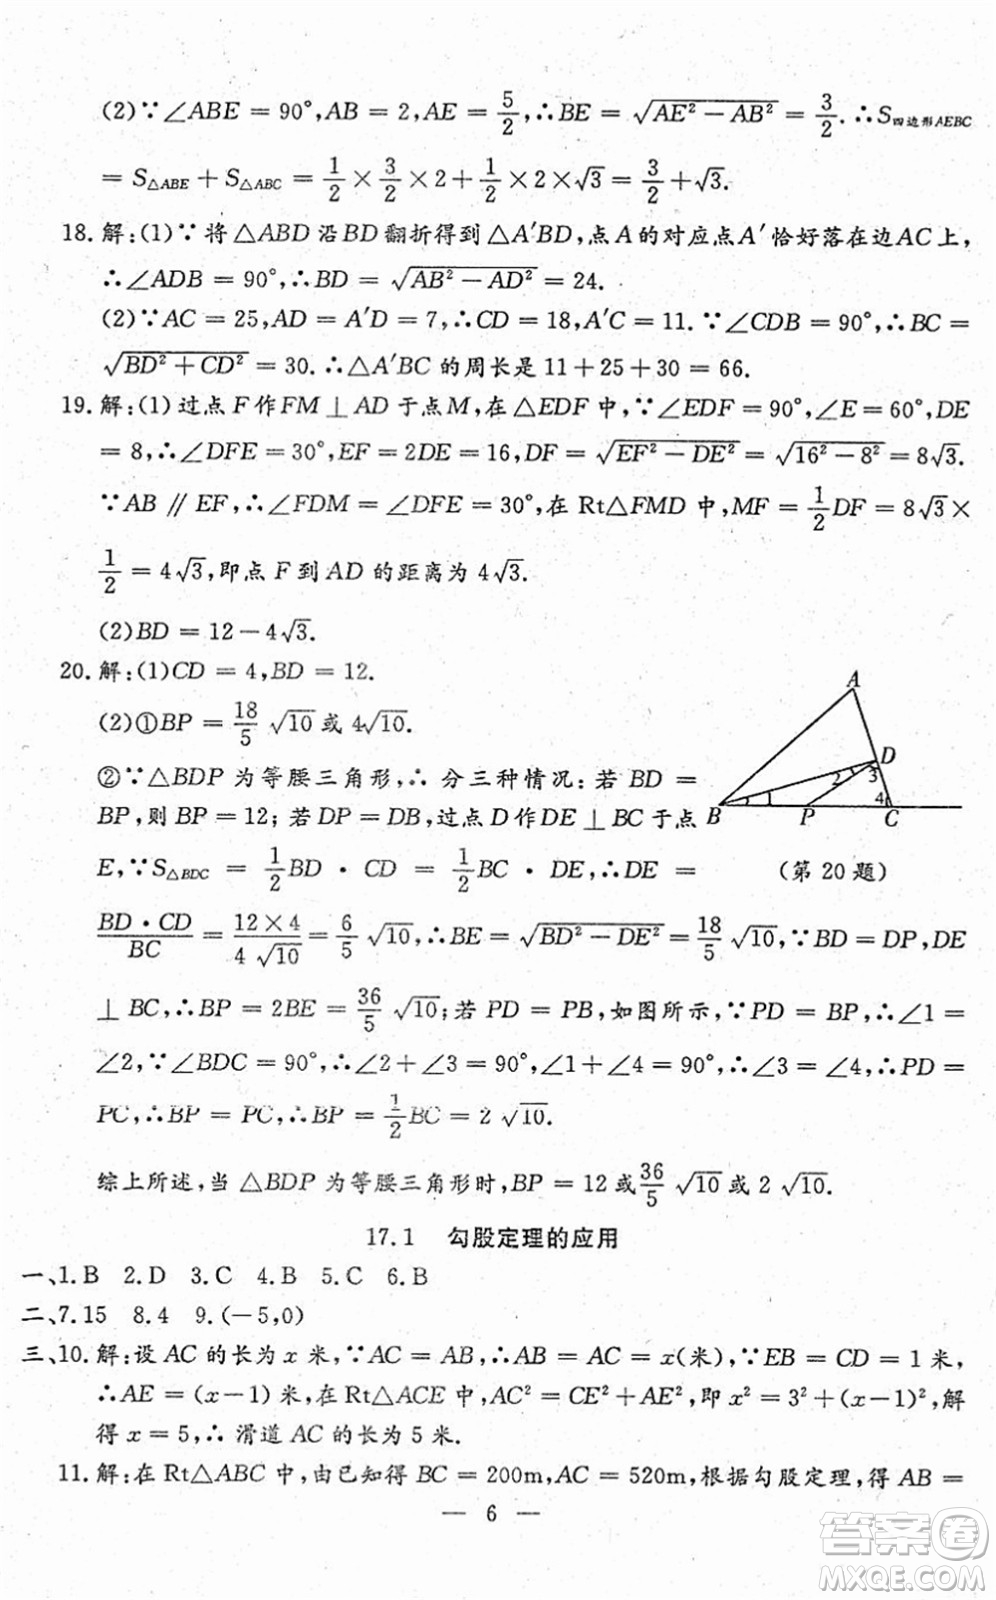 (2)∵∠ABE=90°,AB=2,AE=5/2,∴BE=√(AE²-AB²)=3/2.∴S四边形AEBC
=S△ABE+S△ABC=1/2×3/2×2+1/2×2×√3=3/2+√3.
18.解:(1)∵将△ABD沿BD翻折得到△A′BD,点A的对应点A′恰好落在边AC上,
∴∠ADB=90°,∴BD=√(AB²-AD²)=24.
(2)∵AC=25,AD=A′D=7,∴CD=18,A′C=11.∵∠CDB=90°,∴BC=
√(BD²+CD²)=30.∴△A′BC的周长是11+25+30=66.
19.解:(1)过点F作FM⊥AD于点M,在△EDF中,∵∠EDF=90°,∠E=60°,DE
=8,∴∠DFE=30°,EF=2DE=16,DF=√(EF²-DE²)=√(16²-8²)=8√3.
∵AB∥EF,∴∠FDM=∠DFE=30°,在Rt△FMD中,MF=1/2DF=8√3×
1/2=4√3,即点F到AD的距离为4√3.
(2)BD=12-4√3.
20.解:(1)CD=4,BD=12.
(2)①BP=18/5√10或4√10.
②∵△BDP为等腰三角形,∴分三种情况:若BD=
BP,则BP=12;若DP=DB,过点D作DE⊥BC于点
E,∵S△BDC=1/2BD·CD=1/2BC·DE,∴DE=
A
D
2
3
1
4
B
P
C
(第20题)
BD·CD/BC=12×4/4√10=6/5√10,∴BE=√(BD²-DE²)=18/5√10,∵BD=DP,DE
⊥BC,∴BP=2BE=36/5√10;若PD=PB,如图所示,∵PD=BP,∴∠1=
∠2,∵∠BDC=90°,∴∠2+∠3=90°,∠1+∠4=90°,∴∠3=∠4,∴PD=
PC,∴BP=PC,∴BP=1/2BC=2√10.
综上所述,当△BDP为等腰三角形时,BP=12或36/5√10或2√10.
17.1 勾股定理的应用
一、1.B 2.D 3.C 4.B 5.C 6.B
二、7.15 8.4 9.(-5,0)
三、10.解:设AC的长为x米,∵AC=AB,∴AB=AC=x(米),∵EB=CD=1米,
∴AE=(x-1)米,在Rt△ACE中,AC²=CE²+AE²,即x²=3²+(x-1)²,解
得x=5,∴滑道AC的长为5米.
11.解:在Rt△ABC中,由已知得BC=200m,AC=520m,根据勾股定理,得AB=
— 6 —
答案卷
MXQE.COM